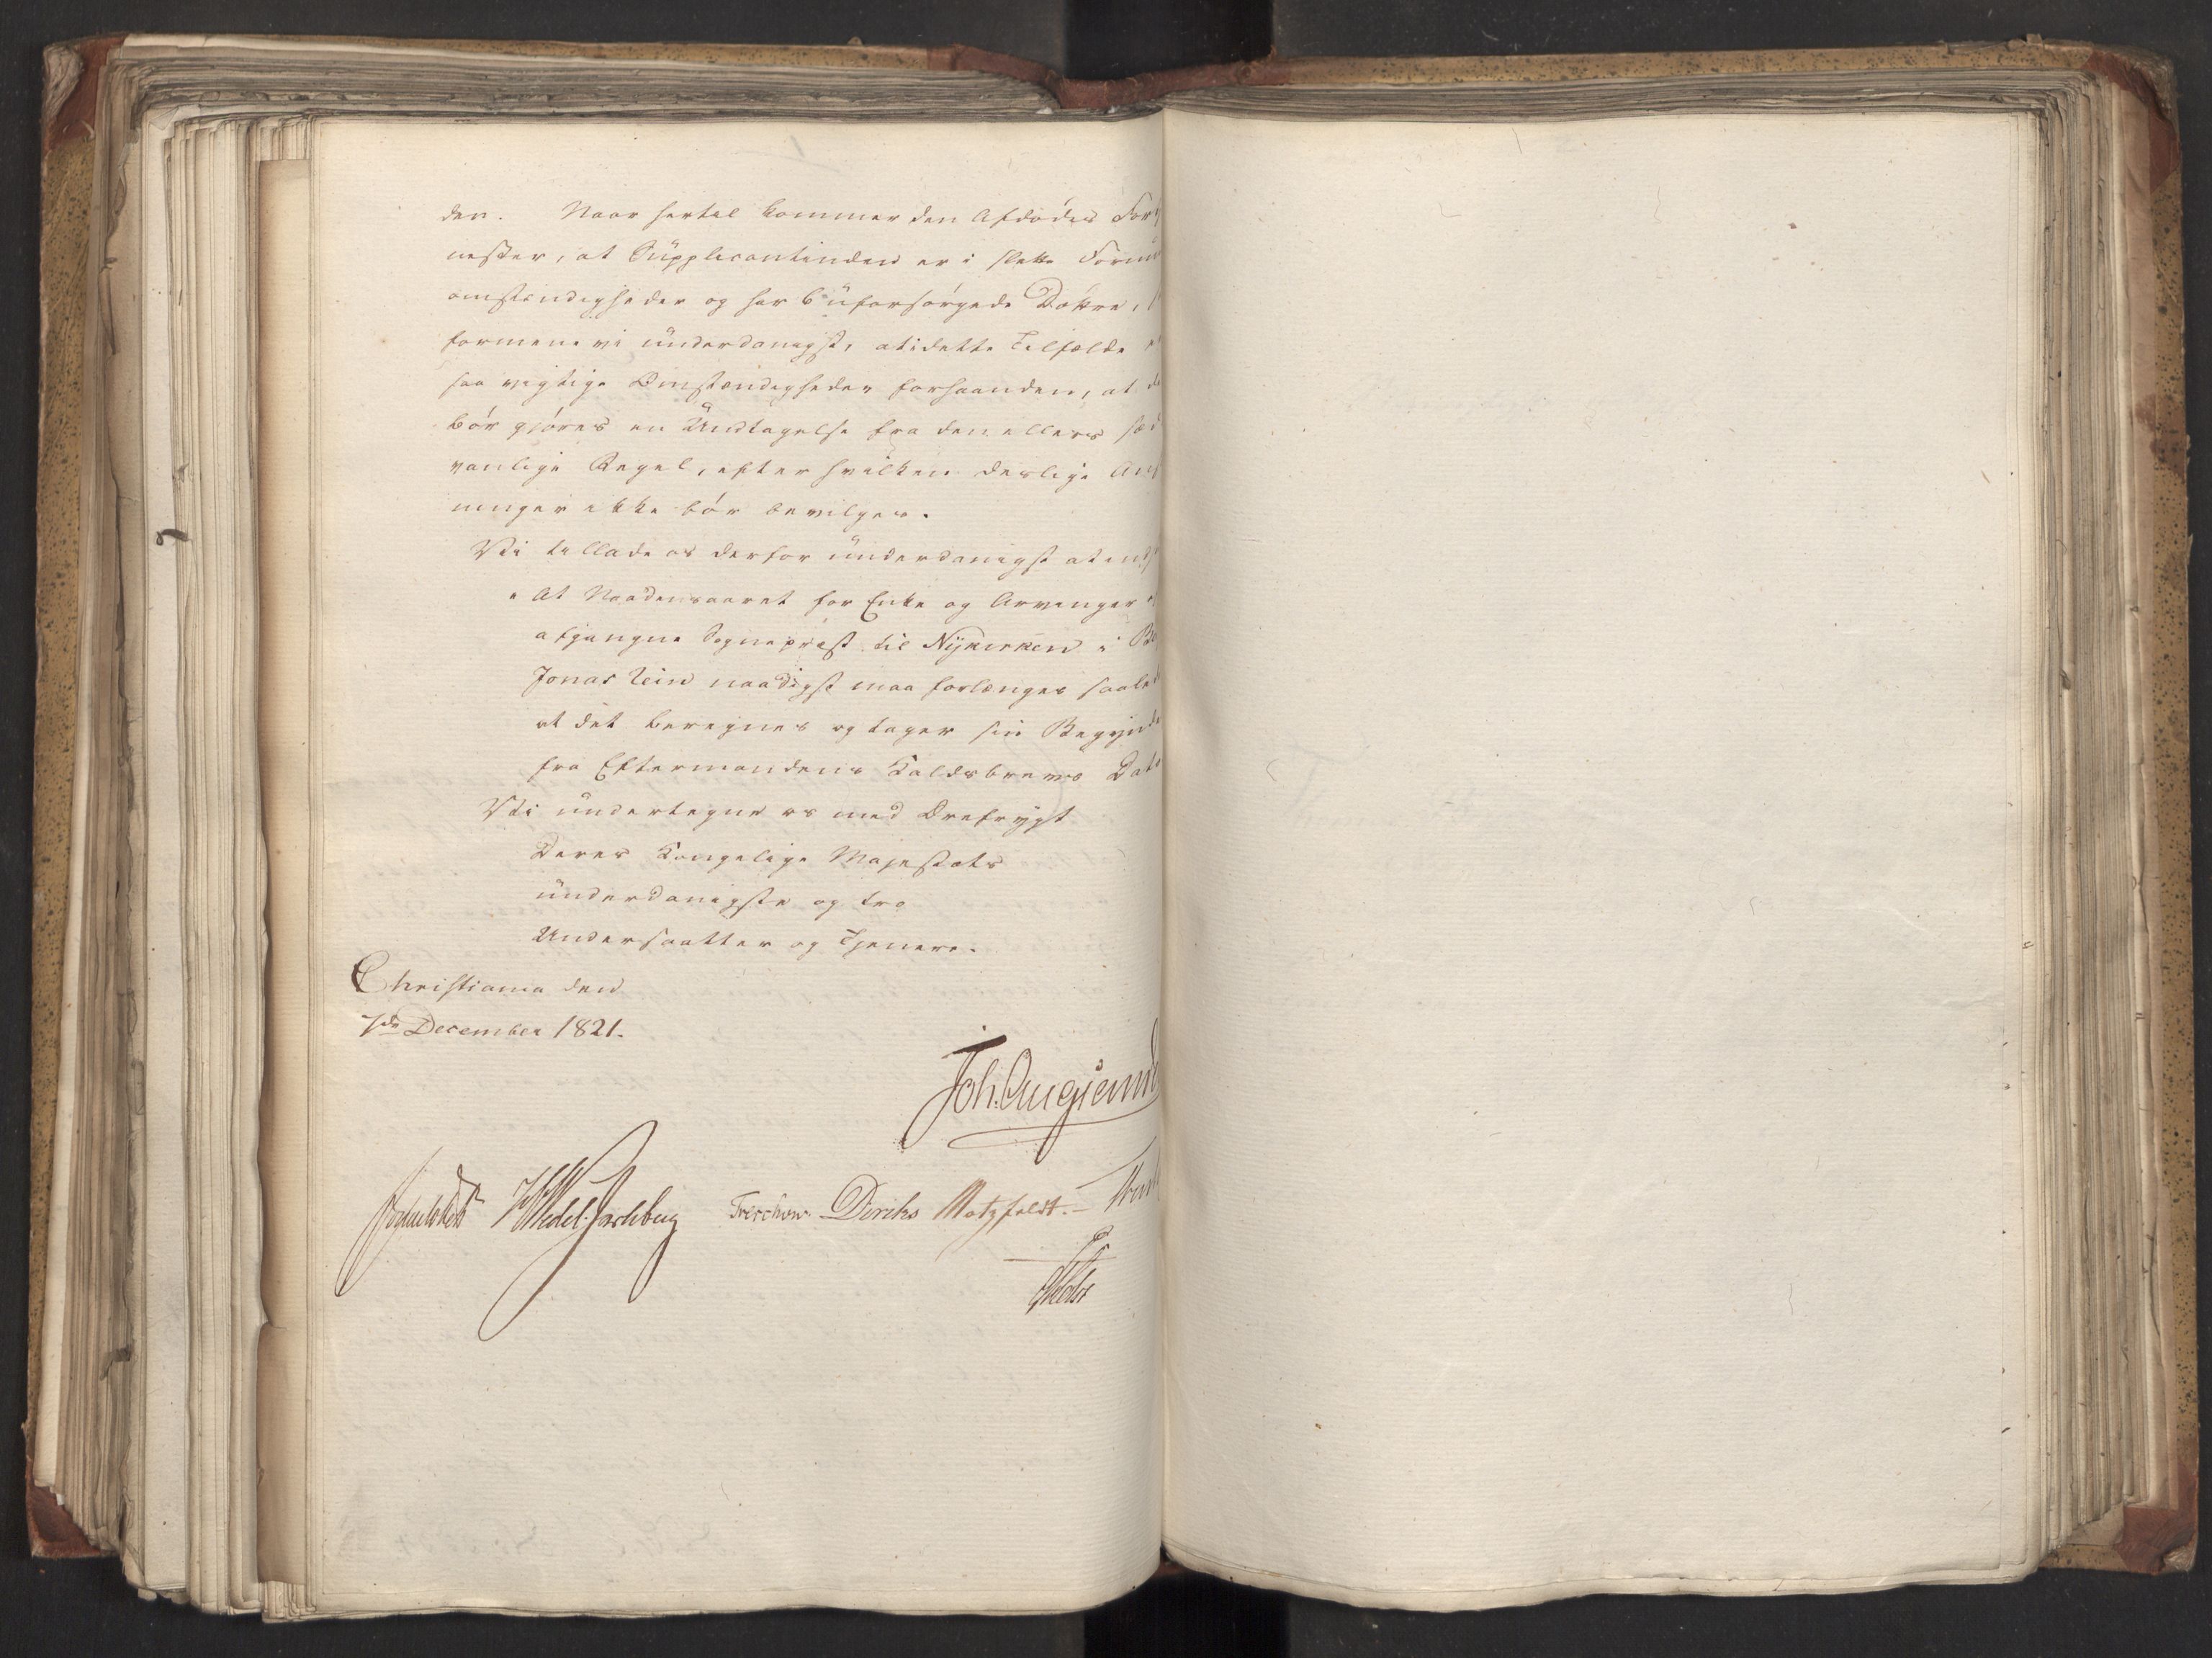 den. Naar hertil kommer den Afdødes For
nester, at Supplicantinden er i slette Formu
omstændigheder og har 6 uforsørgede Døttre,
formene vi underdanigst, at i dette Tilfælde
saa vigtige Omstændigheder forhaanden, at de
bør gjøres en Undtagelse fra den ellers sæd
vanlige Regel, efter hvilken deslige Ans
ninger ikke bør bevilges.
Vi tillade os derfor underdanigst at inds
"At Naadensaaret for Enke og Arvinger
afgangne Sognepræst til Nykirken i Be
Jonas Rein naadigst maa forlænges saaled
at det beregnes og tager sin Begynde
fra Eftermandens Kaldsbrevs Dato
Vi undertegne os med Ærefrygt
Deres Kongelige Majestæts
underdanigste og tro
Undersaatter og Tjenere.
Christiania den
7de December 1821.
Joh. Aug Sand
Sommerhielm HWedel Jarlsberg Treschow. Diriks Motzfeldt. -
Holst